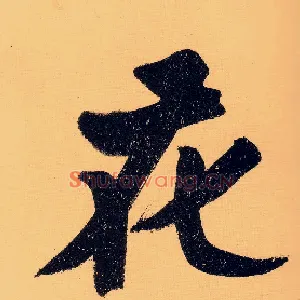 花
Shufawang.cn